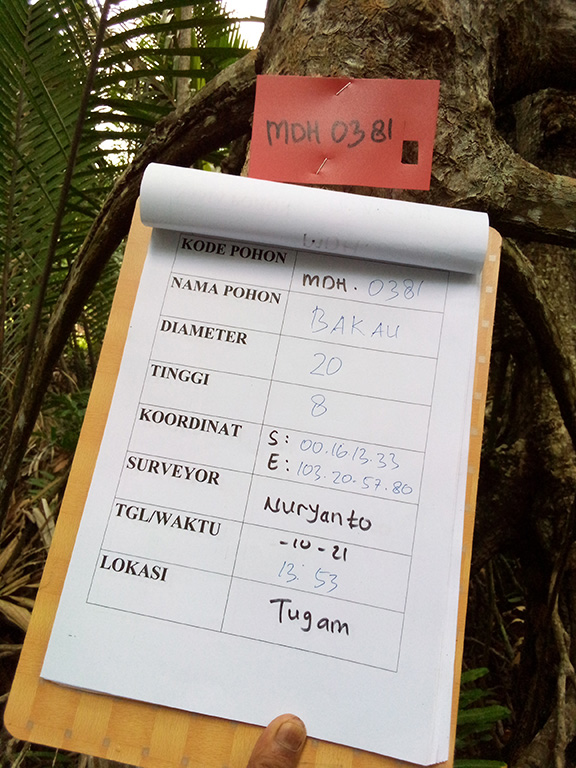 MDH 0381
KODE POHON MDH. 0381
NAMA POHON BAKAU
DIAMETER 20
TINGGI 8
KOORDINAT S: 00.16.13.33
E: 103.20.57.80
SURVEYOR Nuryanto
TGL/WAKTU -10-21
13:53
LOKASI Tugam